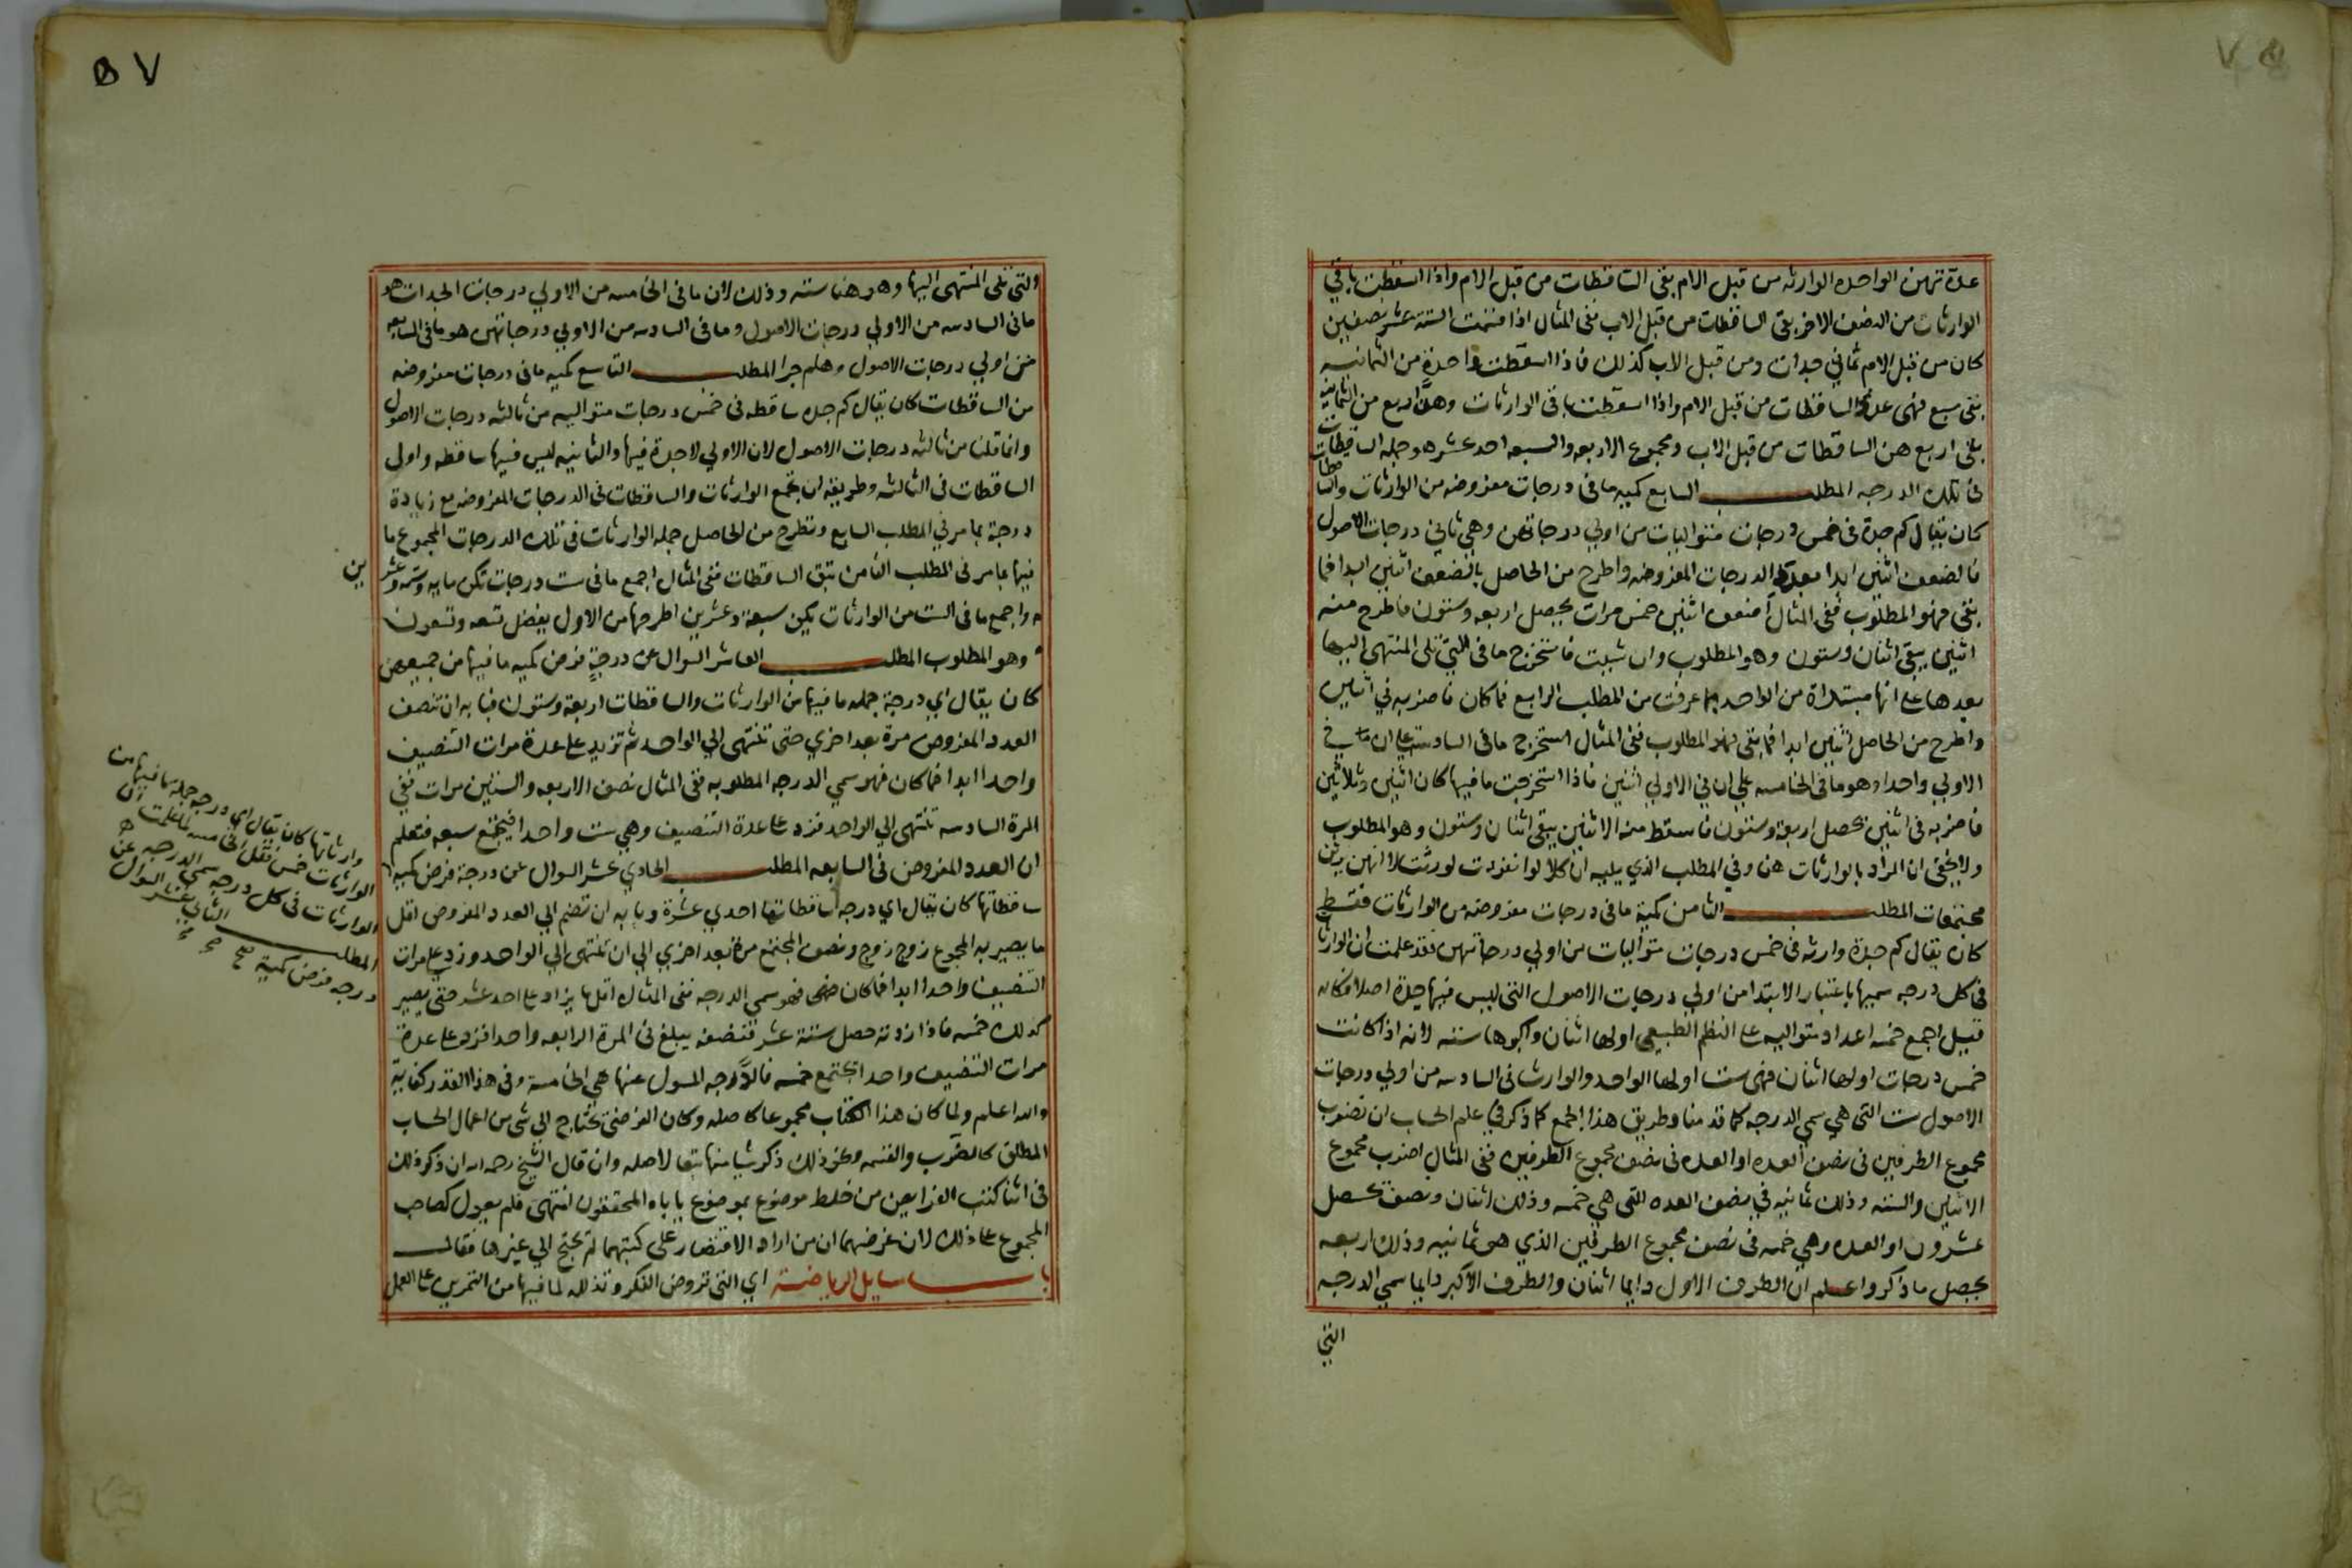 عدة تهن الواحده الوارثه من قبل الام بقى الساقطات من قبل الام واذا اسقطت باقي
الوارثات من النصف الاخر بقى الساقطات من قبل الاب ففى المثال اذا قسمت الستة عشر نصفين
كان من قبل الام ثماني جدات ومن قبل الاب كذلك فاذا اسقطت واحدة من الثمانيه
بقى سبع فهى عدة الساقطات من قبل الام واذا اسقطت باقى الوارثات وهن اربع من الثمانية
بقى اربع هن الساقطات من قبل الاب ومجموع الاربعه والسبعه احد عشر هو جملة الساقطات
فى تلك الدرجه المطلب السابع كميه ما فى درجات مفروضه من الوارثات والساقطات
كان يقال كم جدة فى خمس درجات متواليات من اولي درجاتهن وهي ثاني درجات الاصول
فالضعف اثنين ابدا بعدة الدرجات المفروضه واطرح من الحاصل بالضعف اثنين ابدا فما
بقى فهو المطلوب ففى المثال اضعف اثنين خمس مرات يحصل اربعه وستون فاطرح منه
اثنين يبقى اثنان وستون وهو المطلوب وان شيت فاستخرج ما فى التي تلى المنتهى اليها
بعدها على انها مبتداة من الواحد بما عرفت من المطلب الرابع فما كان فاضربه في اثنين
واطرح من الحاصل اثنين ابدا فما بقى فهو المطلوب ففى المثال استخرج ما فى السادسة على ان ما في
الاولي واحدا وهو ما فى الخامسه على ان في الاولي اثنين فاذا استخرجت ما فيها كان اثنين وثلاثين
فاضربه فى اثنين يحصل اربعة وستون فاسقط منه الاثنين يبقى اثنان وستون وهو المطلوب
ولا يخفى ان المراد بالوارثات هنا وفي المطلب الذي يليه ان كلا لو انفردت لورثت لا انهن يرثن
مجتمعات المطلب الثامن كمية ما فى درجات مفروضه من الوارثات فقط
كان يقال كم جدة وارثه فى خمس درجات متواليات من اولي درجاتهن فقد علمت ان الوارثات
فى كل درجه سميها باعتبار الابتدا من اولي درجات الاصول التى ليس فيها جدة اصلا فكانه
قيل اجمع خمسه اعداد متواليه على النظم الطبيعى اولها اثنان واكبرها سته لانه اذا كانت
خمس درجات اولها اثنان فهى ست اولها الواحد والوارثات فى السادسه من اولي درجات
الاصول ست التى هي سمي الدرجه كما قدمنا وطريق هذا الجمع كما ذكر في علم الحساب ان تضرب
مجموع الطرفين فى نصف العده او العده فى نصف مجموع الطرفين ففى المثال اضرب مجموع
الاثنين والسته وذلك ثمانيه في نصف العده التى هي خمسه وذلك اثنان ونصف يحصل
عشرون او العده وهي خمسه فى نصف مجموع الطرفين الذي هو ثمانيه وذلك اربعه
يحصل ما ذكر واعلم ان الطرف الاول دايما اثنان والطرف الاكبر دايما سمي الدرجه
التي
والتى تلى المنتهى اليها وهو هنا سته وذلك لان ما فى الخامسه من الاولي درجات الجدات هو
ما فى السادسه من الاولي درجات الاصول وما فى السادسه من الاولي درجاتهن هو ما فى السابعه
من اولي درجات الاصول وهلم جرا المطلب التاسع كميه ما فى درجات مفروضه
من الساقطات كان يقال كم جدة ساقطه فى خمس درجات متواليه من ثالثه درجات الاصول
وانما قلنا من ثالثه درجات الاصول لان الاولي لا جدة فيها والثانيه ليس فيها ساقطه واولى
الساقطات فى الثالثه وطريقه ان تجمع الوارثات والساقطات فى الدرجات المفروضه مع زيادة
درجة بما مر في المطلب السابع وتطرح من الحاصل جملة الوارثات فى تلك الدرجات المجموع ما
فيها بما مر فى المطلب الثامن تبق الساقطات ففى المثال اجمع ما فى ست درجات تكن مايه وسته وعشرين
واجمع ما فى الست من الوارثات يكن سبعة وعشرين اطرحها من الاول يفضل تسعه وتسعون
وهو المطلوب المطلب العاشر السوال عن درجةٍ فرض كميه ما فيها من جميعهن
كان يقال اي درجة جمله ما فيها من الوارثات والساقطات اربعة وستون فبابه ان تنصف
العدد المفروض مرة بعد اخري حتى تنتهى الي الواحد ثم تزيد على عدة مرات التنصيف
واحدا ابدا فما كان فهو سمي الدرجه المطلوبه ففى المثال نصف الاربعه والستين مرات ففي
المرة السادسه تنتهى الي الواحد فزد على عدة التنصيف وهي ست واحدا فيجتمع سبعه فتعلم
ان العدد المفروض فى السابعه المطلب الحادي عشر السوال عن درجة فرض كميه
ساقطاتها كان يقال اي درجه ساقطاتها احدي عشرة وبابه ان تضم الي العدد المفروض اقل
ما يصير به المجموع زوج زوج وتنصف المجتمع مرة بعد اخري الي ان تنتهى الي الواحد وزد على مرات
التنصيف واحدا ابدا فما كان فهو سمي الدرجه ففى المثال اقل ما يزاد على احد عشر حتى يصير
كذلك خمسه فاذا زدته حصل ستة عشر فتنصفه يبلغ فى المرة الرابعه واحدا فزد على عدة
مرات التنصيف واحدا يجتمع خمسه فالدرجه المسول عنها هي الخامسة وفى هذا القدر كفاية
والله اعلم ولما كان هذا الكتاب مجموعا كاصله وكان الفرضى يحتاج الي شى من اعمال الحساب
المطلق كالضرب والقسمه ونحو ذلك ذكر شيا منها تبعا لاصله وان قال الشيخ رحمه الله ان ذكر ذلك
فى اثنا كتب الفرايض من خلط موضوع بموضوع ياباه المحققون انتهى فلم يعول كصاحب
المجموع على ذلك لان غرضهما ان من اراد الاقتصار على كتبهما لم يحتج الي غيرها فقال
باب مسايل الرياضة اي التى تروض الفكر وتذلله لما فيها من التمرين على العمل
وارثاتها كان يقال اي درجه جملة ما فيها من
الوارثات خمس فقل الخامسه لما علمت ان
الوارثات فى كل درجه سمي الدرجه
المطلب الثاني عشر السوال عن
درجه فرض كمية صح
٥٧